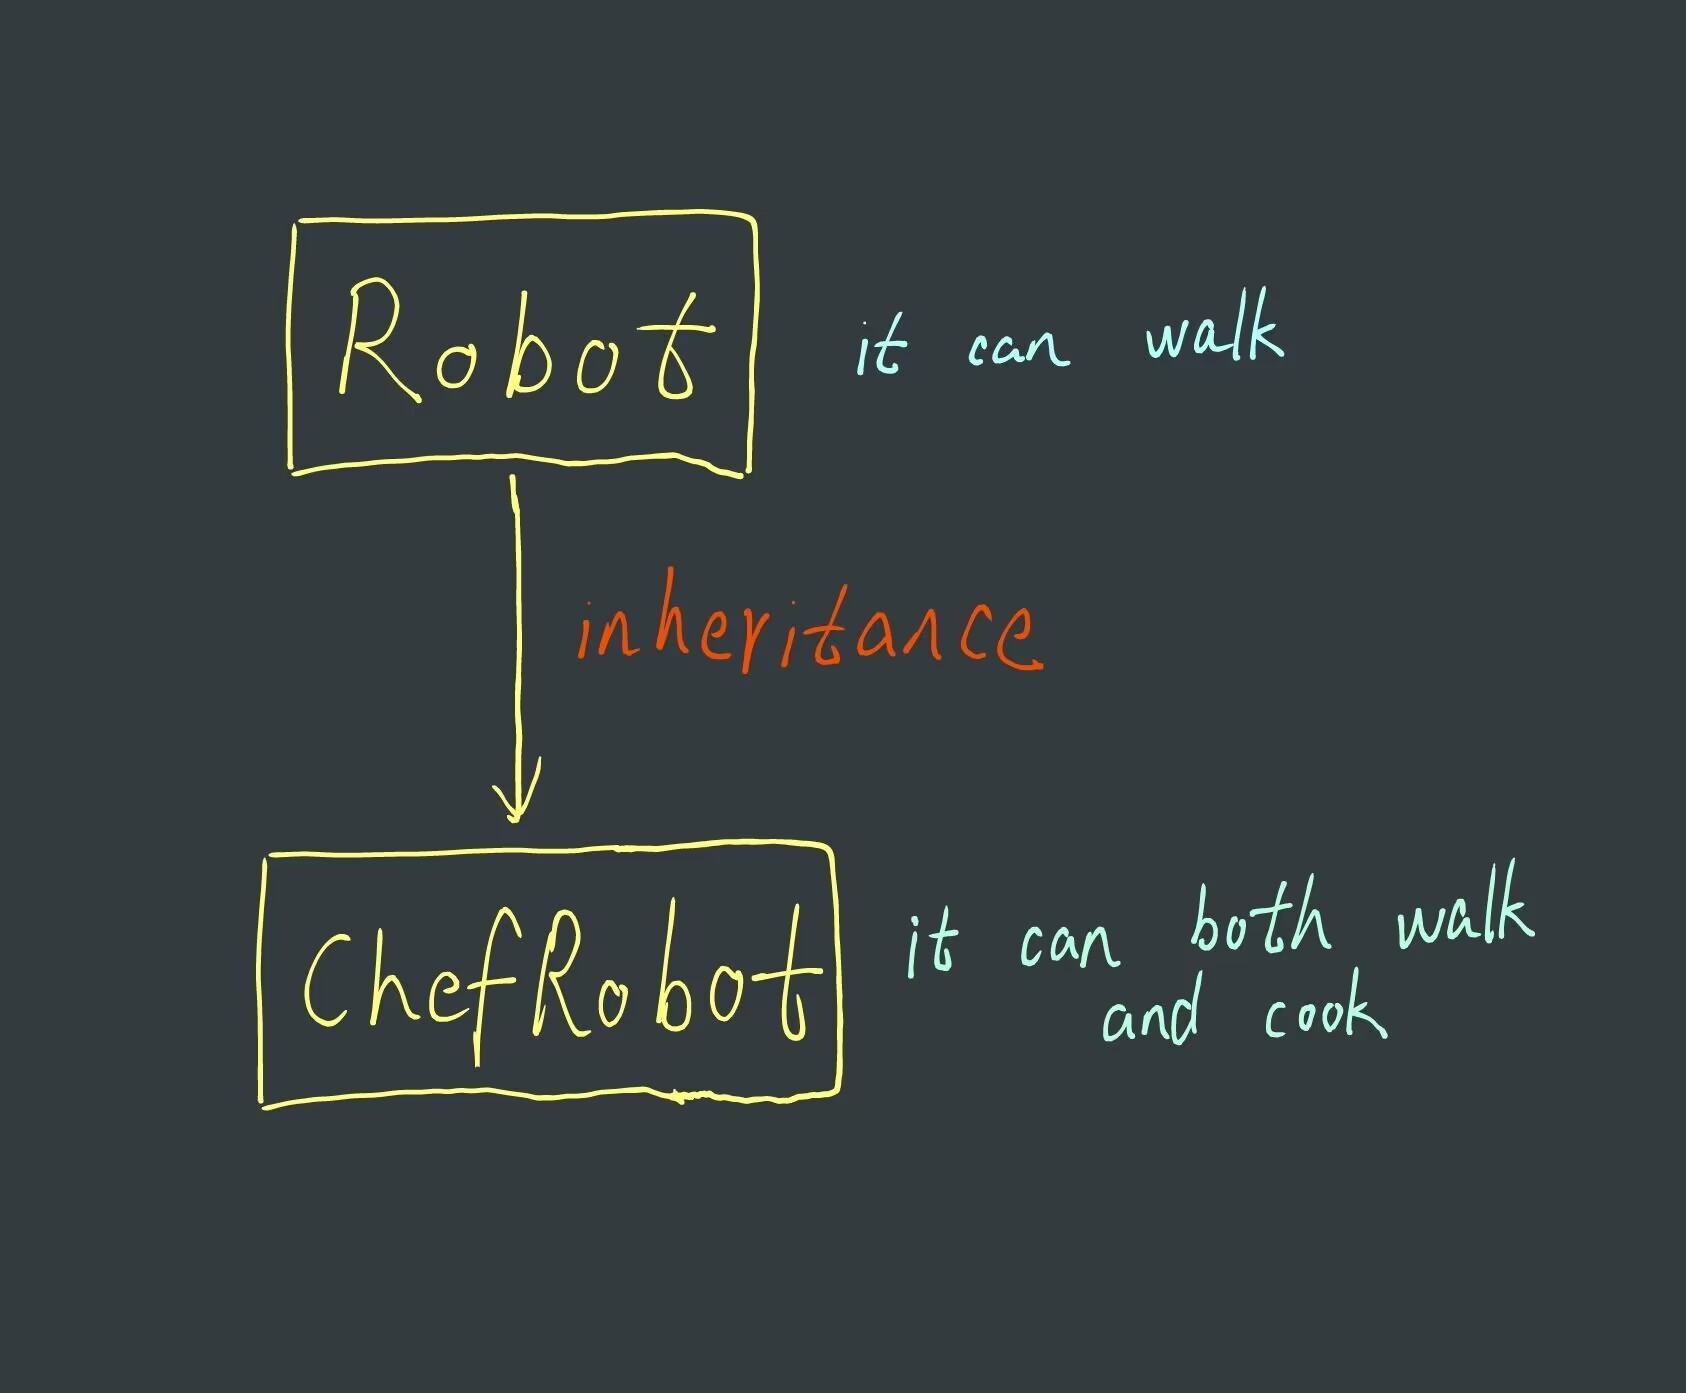 Robot
it can walk
inheritance
ChefRobot
it can both walk
and cook